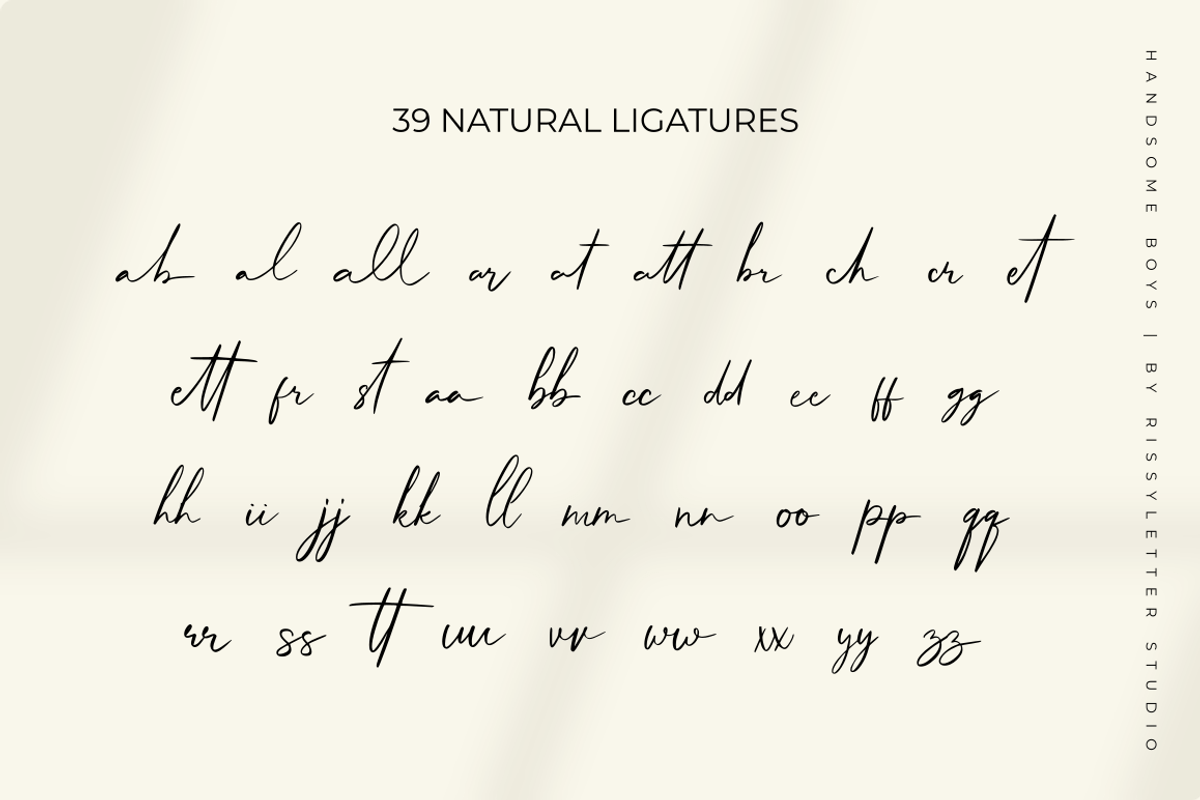 39 NATURAL LIGATURES
ab al all ar at att br ch cr et
ett fr st aa bb cc dd ee ff gg
hh ii jj kk ll mm nn oo pp qq
rr ss tt uu vv ww xx yy zz
HANDSOME BOYS | BY RISSYLETTER STUDIO